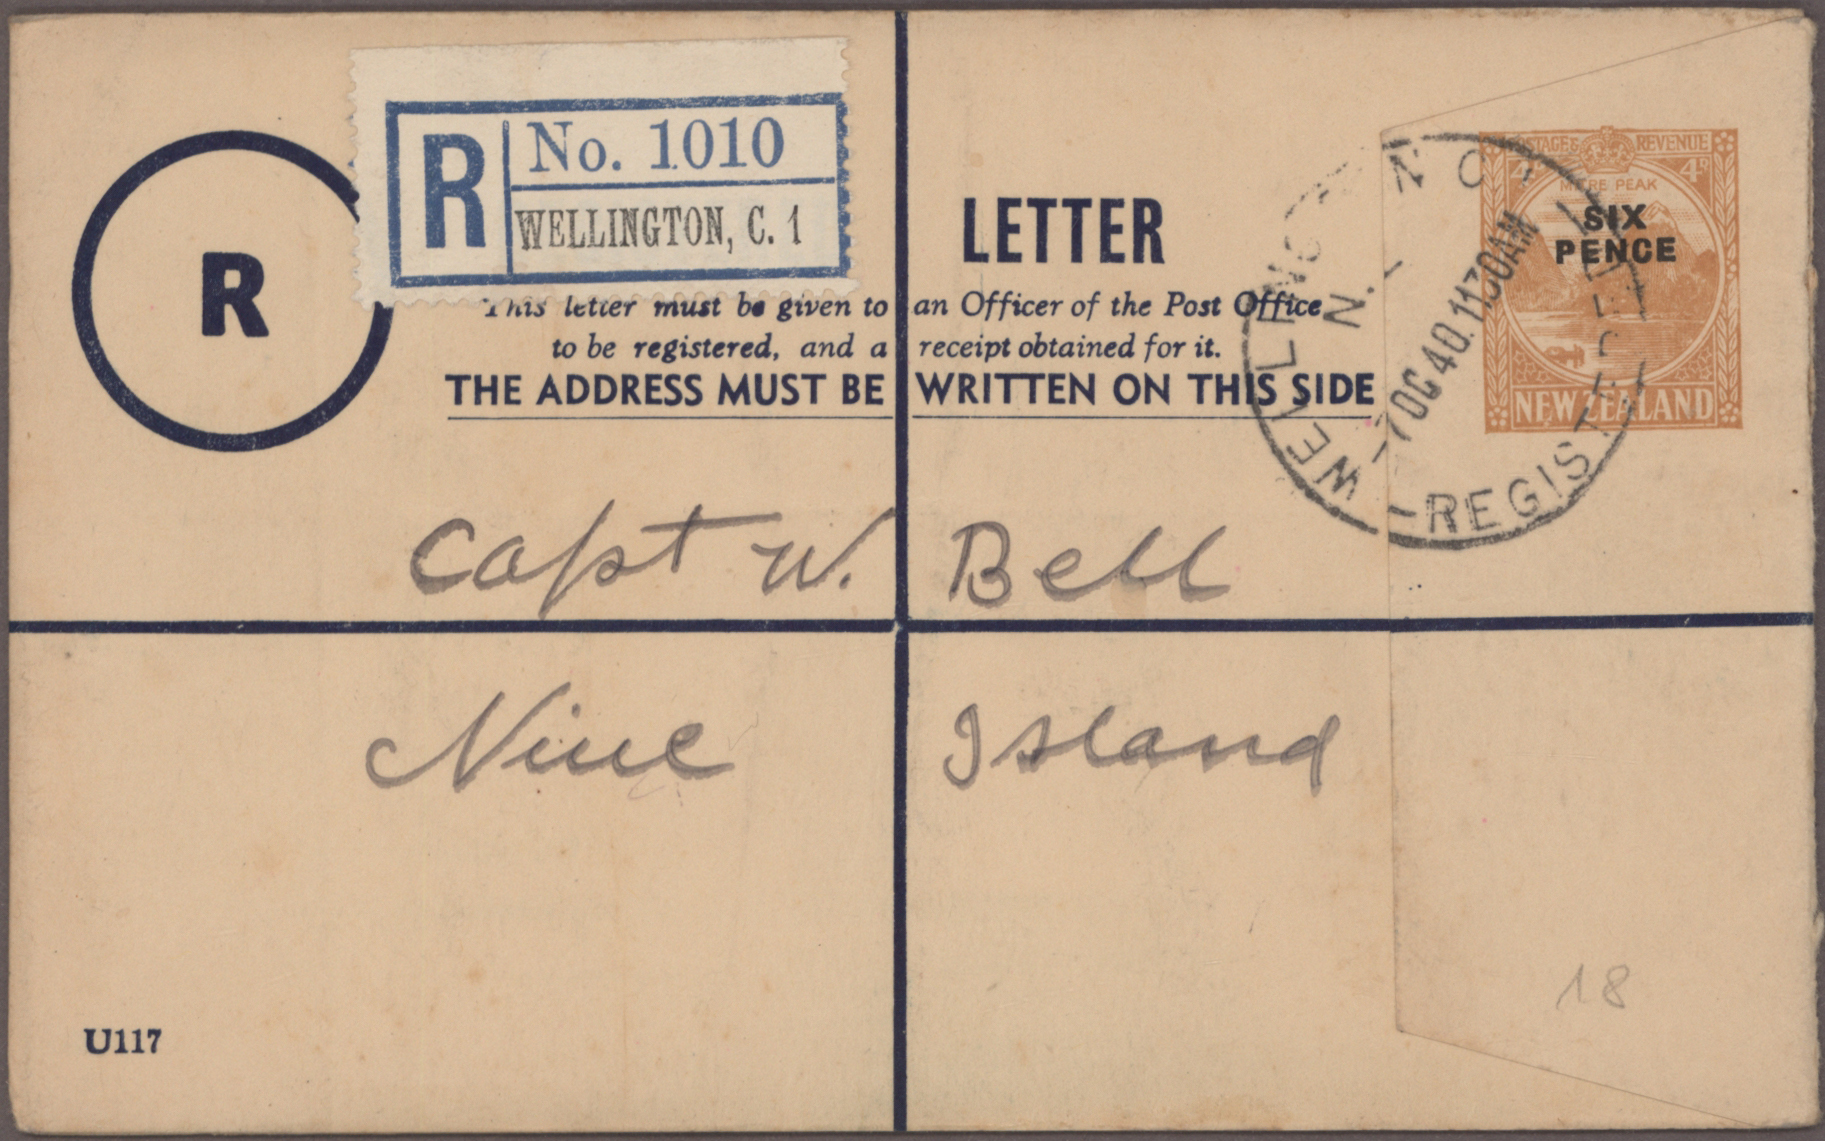 R No. 1010
WELLINGTON, C. 1
R
LETTER
This letter must be given to an Officer of the Post Office
to be registered, and a receipt obtained for it.
THE ADDRESS MUST BE WRITTEN ON THIS SIDE
POSTAGE & REVENUE
4D 4D
MITRE PEAK
SIX
PENCE
NEW ZEALAND
WELLINGTON C1
N.
-7 OC 40. 11 30 AM
REGISTERED
Capt W. Bell
Niue Island
18
U117